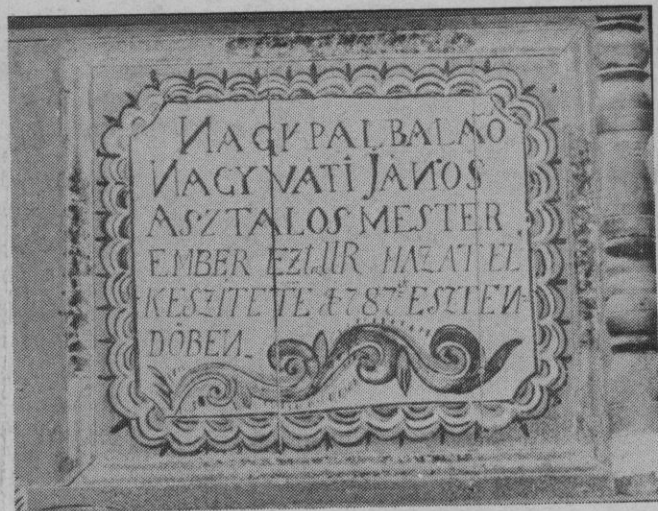 NAGY PÁL BALA´O
NAGYVÁTI JÁNOS
ASZTALOS MESTER
EMBER EZ UR HÁZÁT EL
KÉSZITETTE 1787ᵈⁱᵏ ESZTEN=
DŐBEN